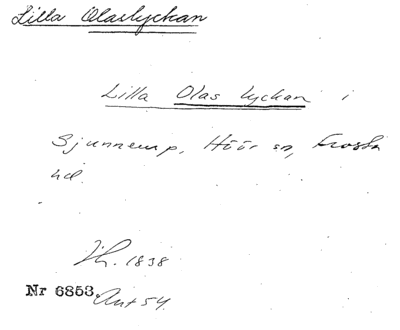 Lilla Olaslyckan
Lilla Olas lyckan i
Sjunnerup, Höör sn, Frosta
hd.
Jh. 1838
Nr 6853. Ant 54.